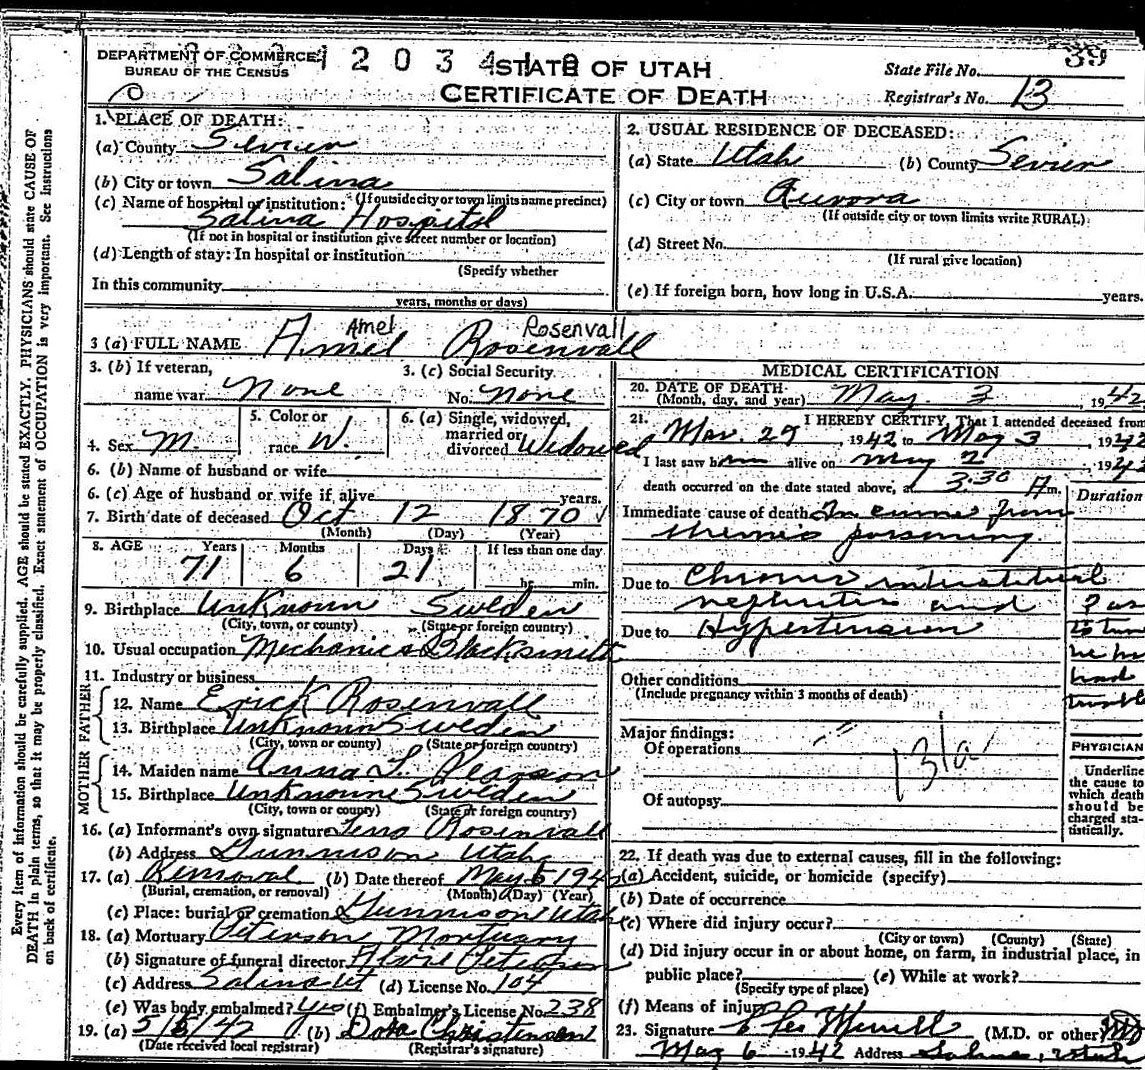 Every item of information should be carefully supplied. AGE should be stated EXACTLY. PHYSICIANS should state CAUSE OF
DEATH in plain terms, so that it may be properly classified. Exact statement of OCCUPATION is very important. See instructions
on back of certificate.
DEPARTMENT OF COMMERCE
BUREAU OF THE CENSUS
STATE OF UTAH
CERTIFICATE OF DEATH
39
State File No.
Registrar's No. 13
1. PLACE OF DEATH:
(a) County Sevier
(b) City or town Salina
(If outside city or town limits name precinct)
(c) Name of hospital or institution:
Salina Hospital
(If not in hospital or institution give street number or location)
(d) Length of stay: In hospital or institution
(Specify whether
In this community
years, months or days)
2. USUAL RESIDENCE OF DECEASED:
(a) State Utah (b) County Sevier
(c) City or town Aurora
(If outside city or town limits write RURAL)
(d) Street No.
(If rural give location)
(e) If foreign born, how long in U.S.A. years.
Amel Rosenvall
3 (a) FULL NAME Amel Rosenvall
3. (b) If veteran, name war None
3. (c) Social Security No. None
4. Sex M.
5. Color or race W.
6. (a) Single, widowed, married or divorced Widowed
6. (b) Name of husband or wife
6. (c) Age of husband or wife if alive years.
7. Birth date of deceased Oct 12 1870
(Month) (Day) (Year)
8. AGE Years Months Days If less than one day
71 6 21 hr. min.
9. Birthplace Unknown Sweden
(City, town, or county) (State or foreign country)
10. Usual occupation Mechanic & Blacksmith
11. Industry or business
FATHER
12. Name Erick Rosenvall
13. Birthplace Unknown Sweden
(City, town or county) (State or foreign country)
MOTHER
14. Maiden name Anna L. Pearson
15. Birthplace Unknown Sweden
(City, town or county) (State or foreign country)
16. (a) Informant's own signature Rosenvall
(b) Address Gunnison Utah
17. (a) Removal (b) Date thereof May 5 194
(Burial, cremation, or removal) (Month) (Day) (Year)
(c) Place: burial or cremation Gunnison Utah
18. (a) Mortuary Peterson Mortuary
(b) Signature of funeral director Petersen
(c) Address Salina Ut (d) License No. 104
(e) Was body embalmed? yes (f) Embalmer's License No. 238
19. (a) 5/6/42 (b) Dora Christensen
(Date received local registrar) (Registrar's signature)
MEDICAL CERTIFICATION
20. DATE OF DEATH May 3, 1942
(Month, day, and year)
21. I HEREBY CERTIFY, That I attended deceased from
Mar. 29, 1942 to May 3 1942
I last saw him alive on May 2, 1942
death occurred on the date stated above, at 3:30 A m.
Duration
Immediate cause of death In coma from
uremic poisoning
Due to Chronic interstitial
nephritis and
Due to Hypertension
Other conditions
(Include pregnancy within 3 months of death)
Major findings:
Of operations
131a
Of autopsy
PHYSICIAN
Underline
the cause to
which death
should be
charged sta-
tistically.
22. If death was due to external causes, fill in the following:
(a) Accident, suicide, or homicide (specify)
(b) Date of occurrence
(c) Where did injury occur?
(City or town) (County) (State)
(d) Did injury occur in or about home, on farm, in industrial place, in
public place? (e) While at work?
(Specify type of place)
(f) Means of injury
23. Signature Merrill (M.D. or other) MD
May 6 1942 Address Salina, Utah